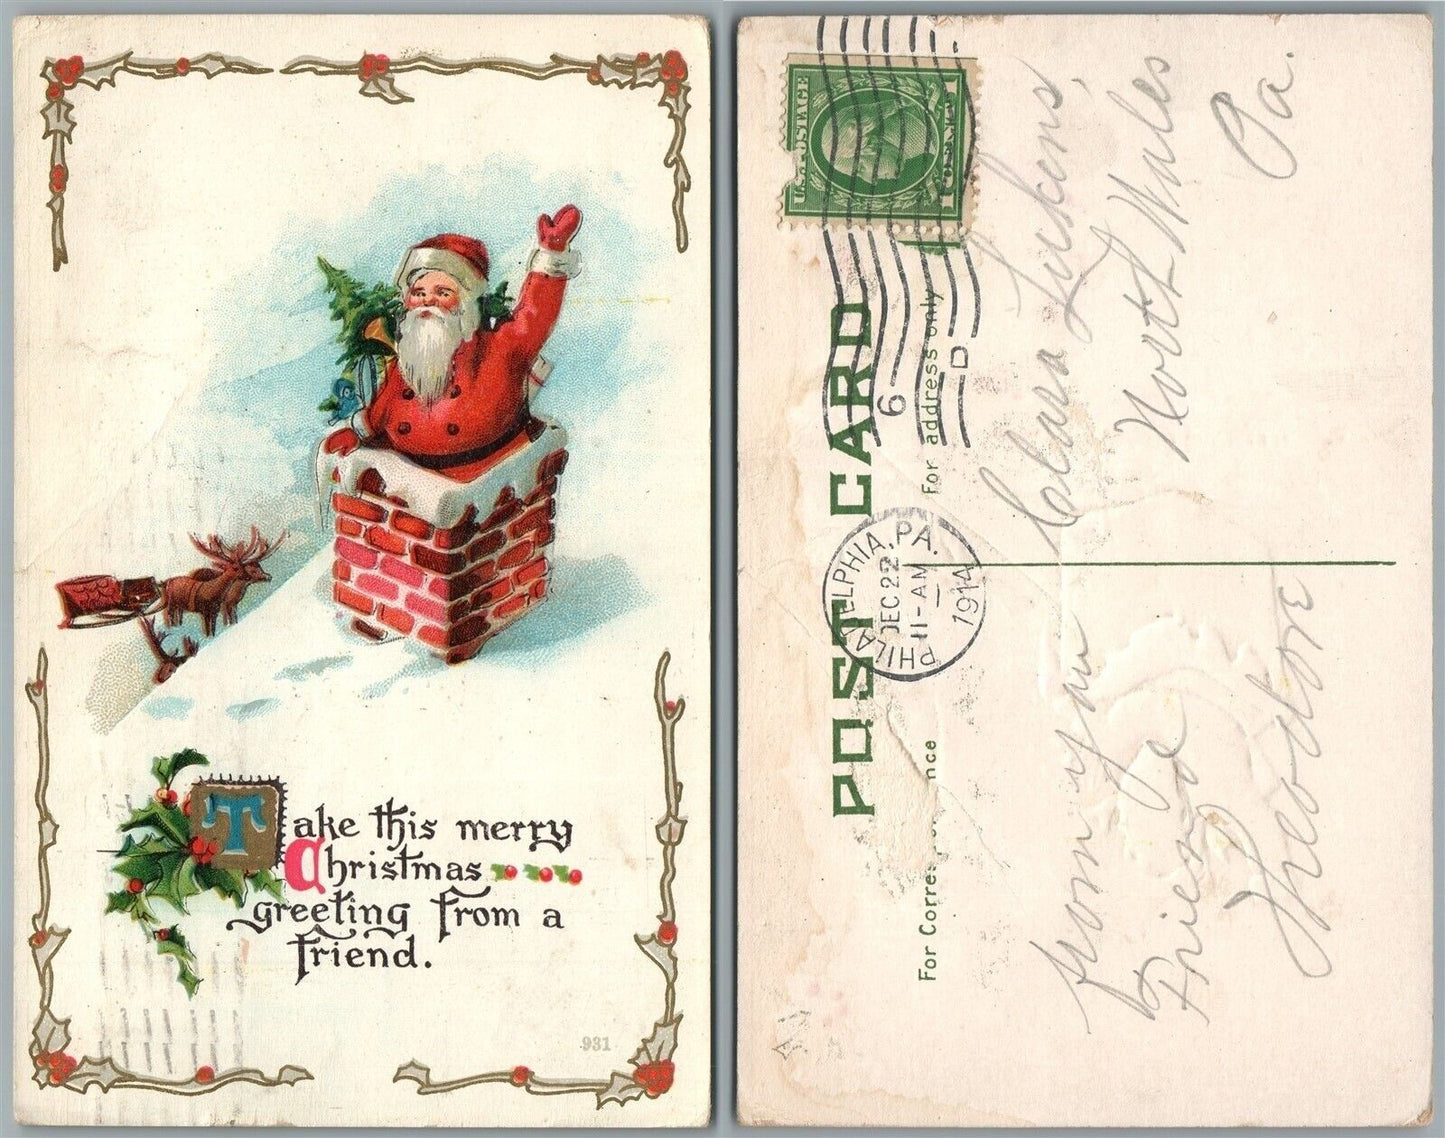 Take this merry
Christmas
greeting from a
friend.
931
POST CARD
For Correspondence
For address only
U.S. POSTAGE
1 1
PHILADELPHIA, PA.
DEC 22
11-AM
1914
6
D
Clara Lukens,
North Wales
Pa.
from your
Friend
Theodore